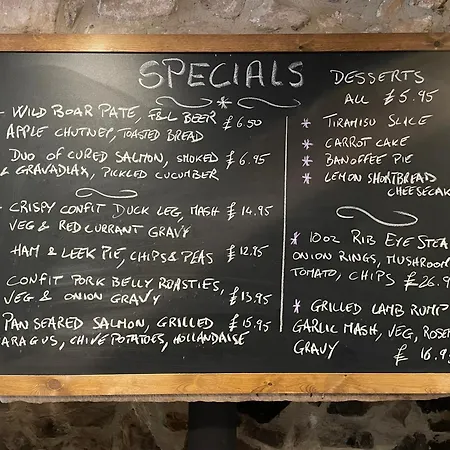 SPECIALS
WILD BOAR PATE, F&L BEER
APPLE CHUTNEY, TOASTED BREAD £6.50
DUO OF CURED SALMON, SMOKED £6.95
& GRAVADLAX, PICKLED CUCUMBER
CRISPY CONFIT DUCK LEG, MASH £14.95
VEG & REDCURRANT GRAVY
HAM & LEEK PIE, CHIPS & PEAS £12.95
CONFIT PORK BELLY, ROASTIES,
VEG & ONION GRAVY £13.95
PAN SEARED SALMON, GRILLED £15.95
ARAGUS, CHIVE POTATOES, HOLLANDAISE
DESSERTS
ALL £5.95
* TIRAMISU SLICE
* CARROT CAKE
* BANOFFEE PIE
* LEMON SHORTBREAD
CHEESECAK
* 10oz RIB EYE STEA
ONION RINGS, MUSHROOM
TOMATO, CHIPS £26.9
* GRILLED LAMB RUMP
GARLIC MASH, VEG, ROSE
GRAVY £16.95